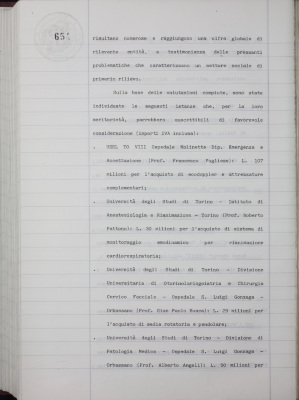 654
risultano numerose e raggiungono una cifra globale di
rilevante entità, a testimonianza delle presenti
problematiche che caratterizzano un settore sociale di
primario rilievo.
Sulla base delle valutazioni compiute, sono state
individuate le seguenti istanze che, per la loro
meritorietà, parrebbero suscettibili di favorevole
considerazione (importi IVA inclusa):
. USSL TO VIII Ospedale Molinette Dip. Emergenza e
Accettazione (Prof. Francesco Pugliese): L. 107
milioni per l'acquisto di ecodoppler e attrezzature
complementari;
. Università degli Studi di Torino - Istituto di
Anestesiologia e Rianimazione - Torino (Prof. Roberto
L. 30 milioni per l'acquisto di sistema di
monitoraggio emodinamico per rianimazione
cardiorespiratoria;
. Università degli Studi di Torino - Divisione
Universitaria di Otorinolaringoiatria e Chirurgia
Cervico Facciale - Ospedale S. Luigi Gonzaga -
Orbassano (Prof. Gian Paolo L. 29 milioni per
l'acquisto di sedia rotatoria e pendolare;
. Università degli Studi di Torino - Divisione di
Patologia Medica - Ospedale S. Luigi Gonzaga -
Orbassano (Prof. Alberto Angeli): L. 90 milioni per